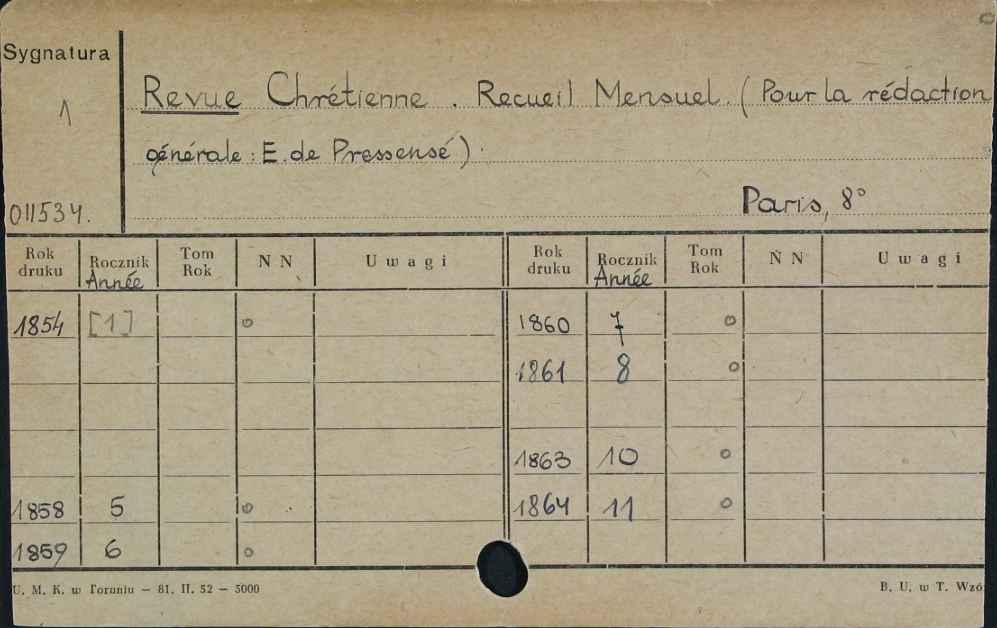 Sygnatura
1
Revue Chrétienne. Recueil Mensuel. (Pour la rédaction
générale: E. de Pressensé).
Paris, 8°
011534.
Rok druku Rocznik Année Tom Rok N N U w a g i Rok druku Rocznik Année Tom Rok N N U w a g i
1854 [1] o 1860 7 o
1861 8 o
1863 10 o
1858 5 o 1864 11 o
1859 6 o
U. M. K. w Toruniu — 81. II. 52 — 5000 B. U. w T. Wzó